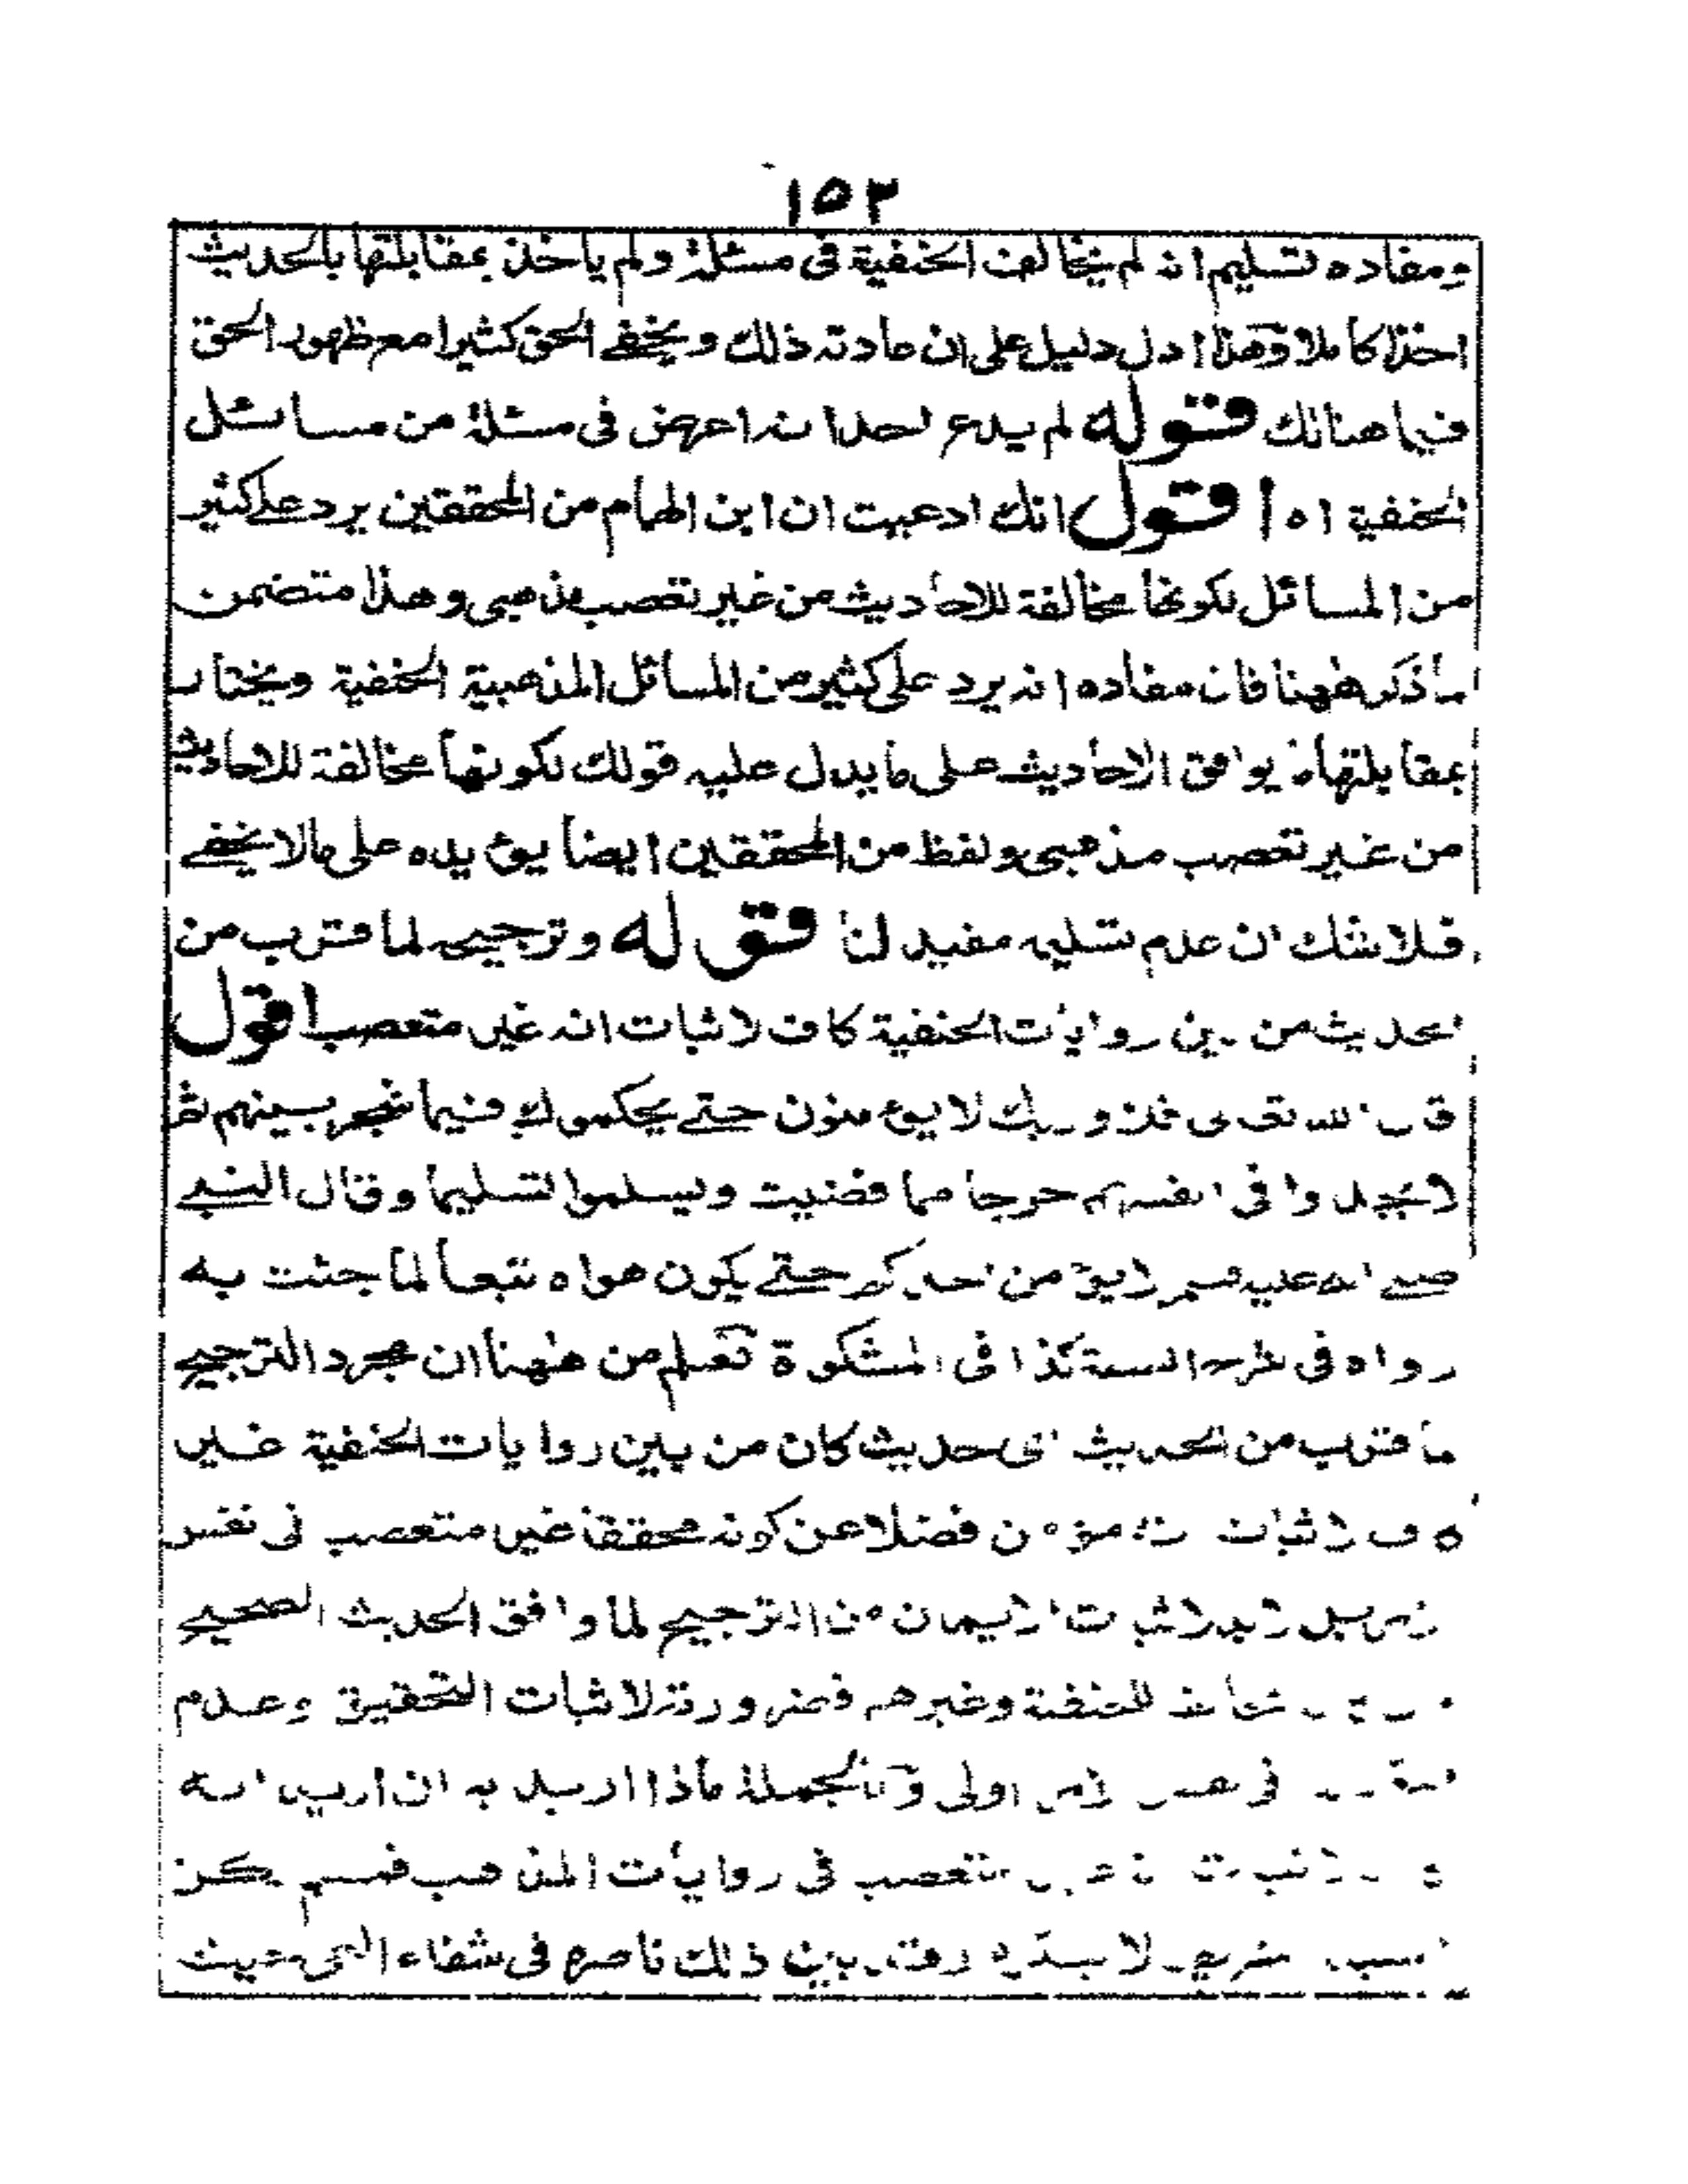 ١٥٣
ومفاده تسليم انه لم يخالف الحنفية فى مسئلة ولم ياخذ بمقابلتها بالحديث
اخذا كاملا وهذا ادل دليل على ان عادته ذلك ويخفے الحق كثيرا مع ظهور الحق
فيما هنالك قوله لم يدع احد انه اعرض فى مسئلة من مسائل
الحنفية اه اقول انك ادعيت ان ابن الهمام من المحققين يرد علے كثير
من المسائل لكونها مخالفة للاحاديث من غير تعصب مذهبى وهذا متضمن
ما ذكر ههنا فان مفاده انه يرد على كثير من المسائل المذهبية الحنفية ويختار
بمقابلتها ما يوافق الاحاديث على ما يدل عليه قولك لكونها مخالفة للاحاديث
من غير تعصب مذهبى ولفظ من المحققين ايضا يؤيده على مالا يخفے
فلا شك ان عدم تسليمه مفيد لنا قوله وترجيحه لما قرب من
الحديث من بين روايات الحنفية كاف لاثبات انه غير متعصب اقول
قال الله تعالى فلا وربك لا يؤمنون حتے يحكموك فيما شجر بينهم ثم
لا يجدوا فى انفسهم حرجا مما قضيت ويسلموا تسليما وقال النبے
صلے الله عليه وسلم لا يؤمن احدكم حتے يكون هواه تبعا لما جئت به
رواه فى شرح السنة كذا فى المشكوة فعلم من ههنا ان مجرد الترجيح
ما قرب من الحديث اى حديث كان من بين روايات الحنفية غير
كاف لاثبات انه مؤمن فضلا عن كونه محققا غير متعصب فى نفس
الامر بل لابد لاثبات الايمان من الترجيح لما وافق الحديث الصحيح
للحنفية وغيرهم فضرورته لاثبات التحقيق وعدم
فى نفس الامر اولى وبالجملة ماذا اريد به ان اريد انه
متعصب فى روايات المذهب فمسلم لكن
لا يستلزمه وقد بين ذلك ناصره فى شفاء العى حيث